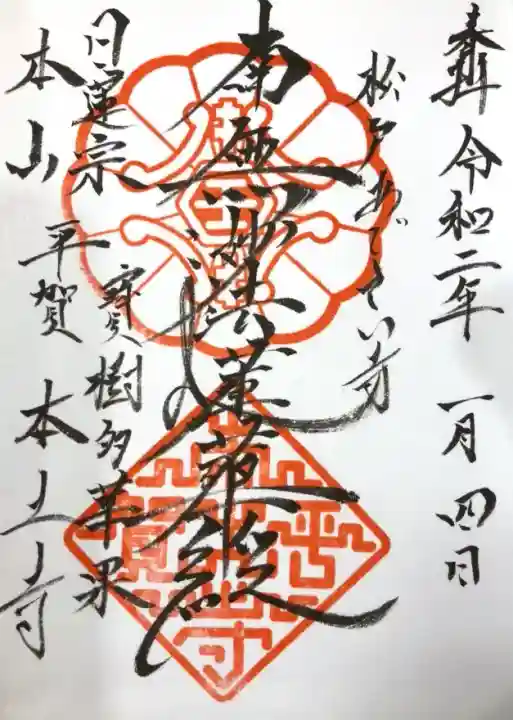 奉拝 令和二年 一月四日
松戸あぢさい寺
南無妙法蓮華経
寳樹多華果
日蓮宗
本山 平賀 本土寺